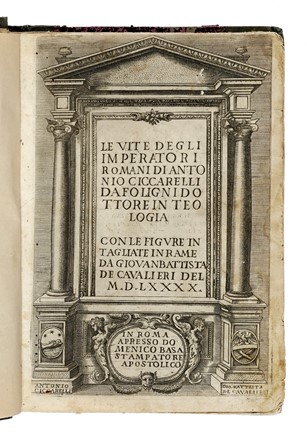 LE VITE DEGLI
IMPERATORI
ROMANI DI ANTO
NIO CICCARELLI
DA FOLIGNI DO
TTORE IN TEO
LOGIA
CON LE FIGVRE IN
TAGLIATE IN RAME
DA GIOVANBATTISTA
DE CAVALIERI DEL
M.D.LXXXX.
IN ROMA
APRESSO DO
MENICO BASA
STAMPATORE
APOSTOLICO
ANTONIO
CICCARELLI
BATTISTA
DE CAVALIERI